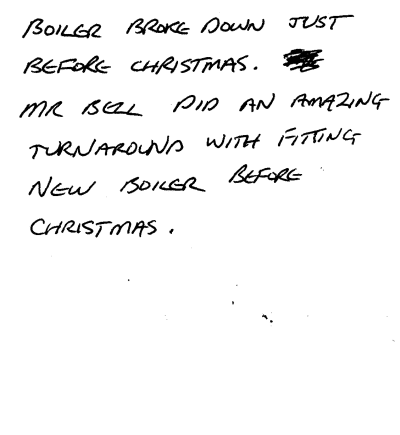 BOILER BROKE DOWN JUST
BEFORE CHRISTMAS.
MR BELL DID AN AMAZING
TURNAROUND WITH FITTING
NEW BOILER BEFORE
CHRISTMAS.